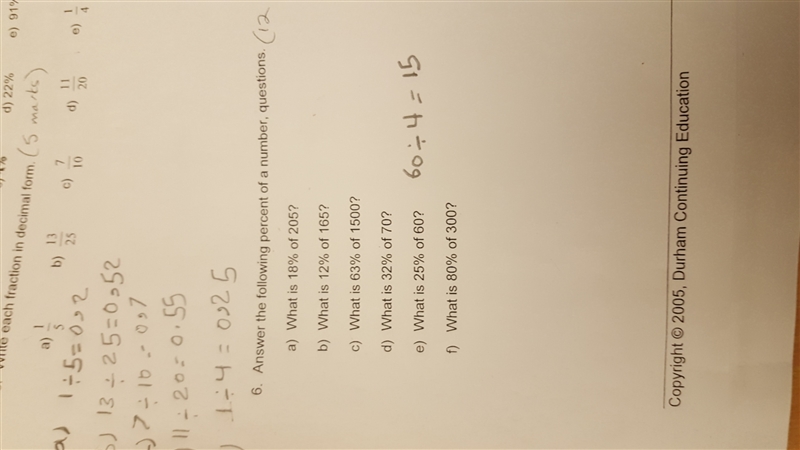 d) 22% e) 91%
Write each fraction in decimal form. (5 marks)
a) 1/5 b) 13/25 c) 7/10 d) 11/20 e) 1/4
a) 1÷5=0,2
13÷25=0,52
7÷10=0,7
11÷20=0.55
1÷4=0,25
6. Answer the following percent of a number, questions. (12
a) What is 18% of 205?
b) What is 12% of 165?
c) What is 63% of 1500?
d) What is 32% of 70?
e) What is 25% of 60? 60÷4=15
f) What is 80% of 300?
Copyright © 2005, Durham Continuing Education